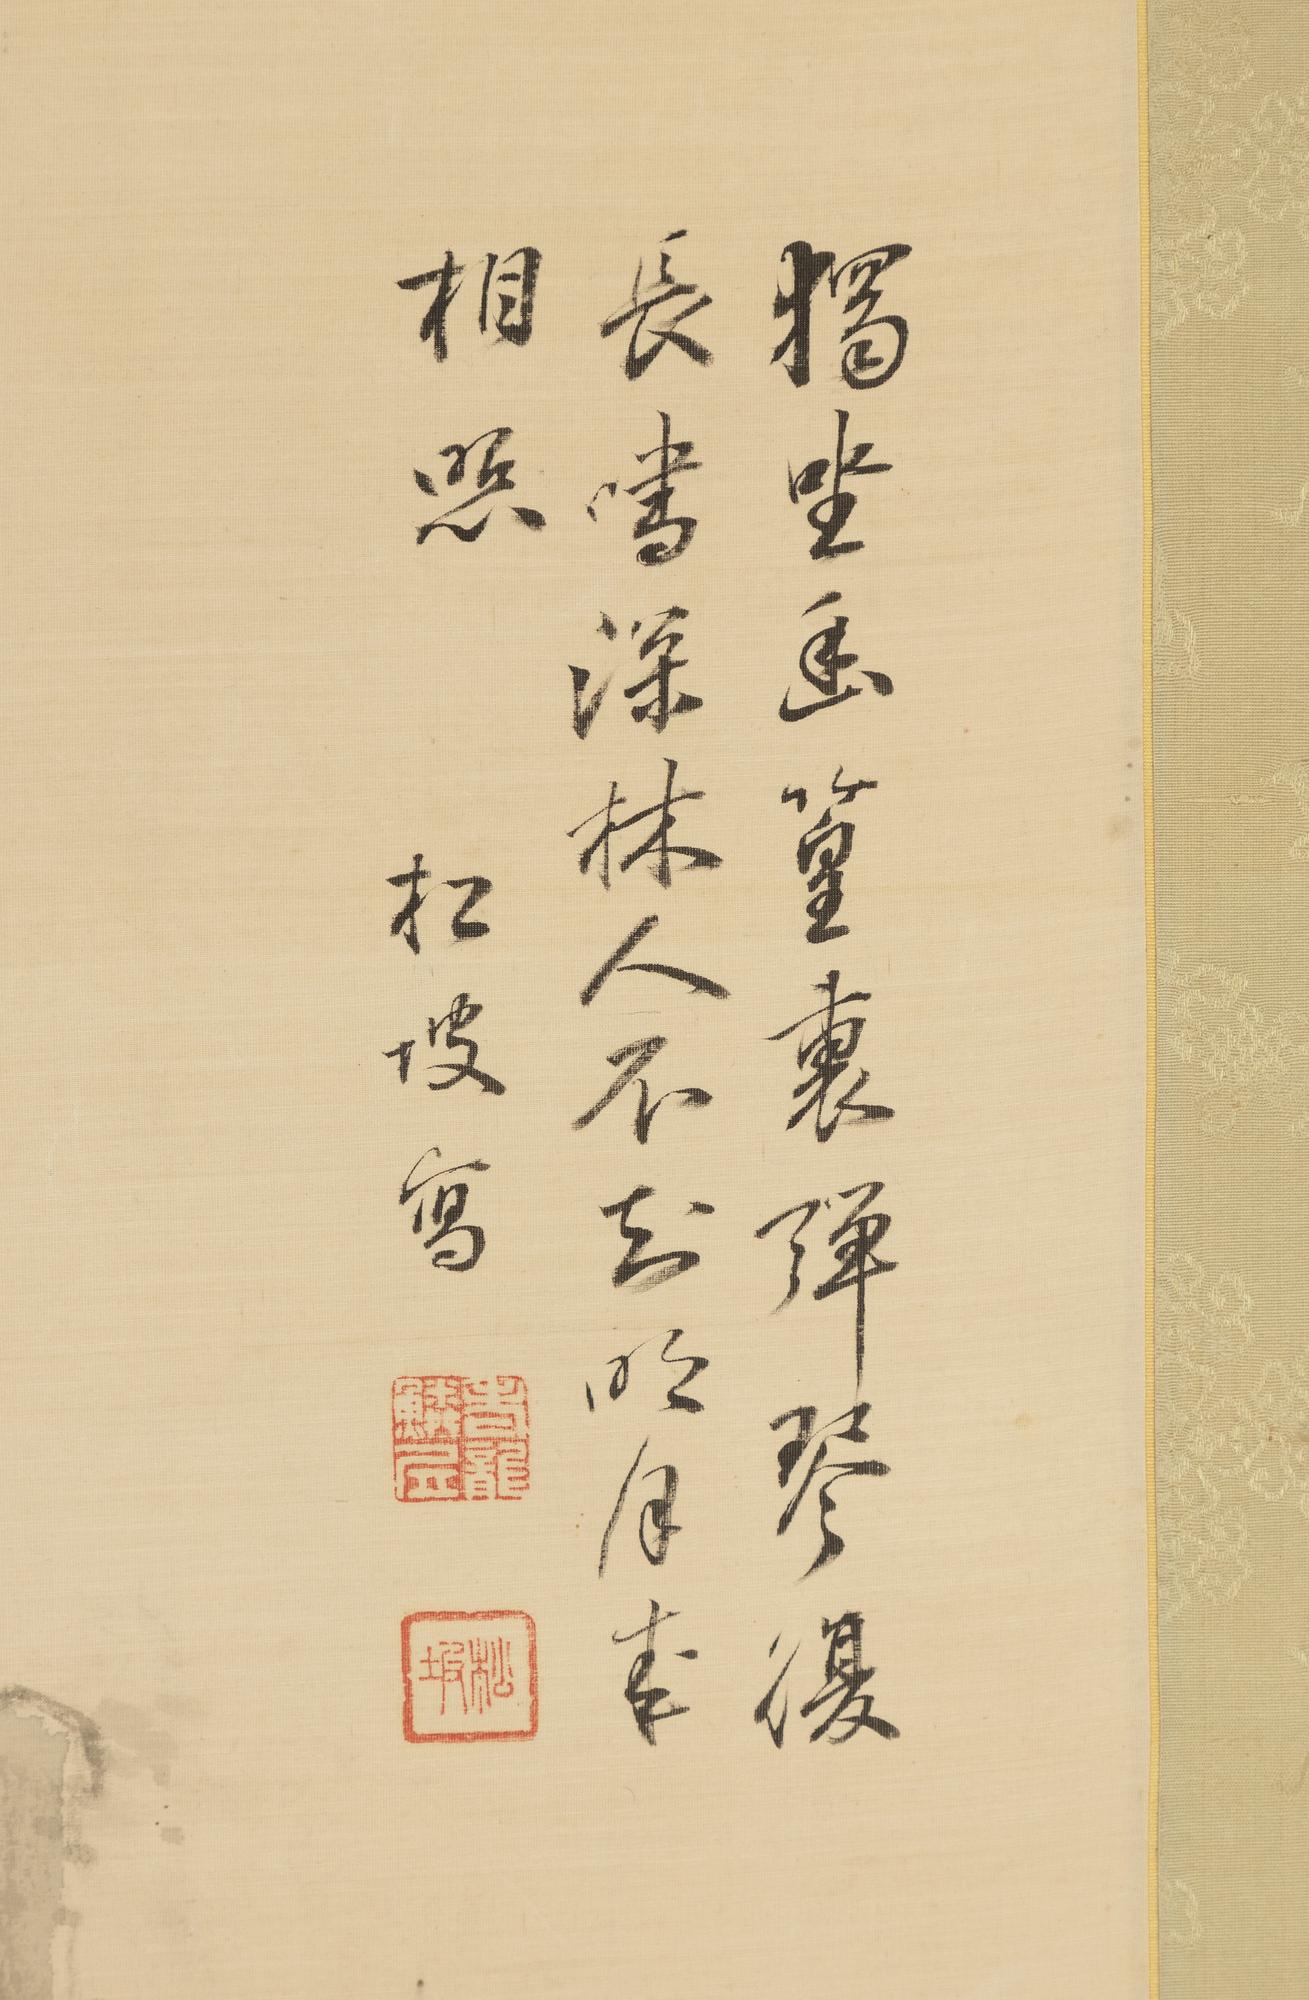 獨坐幽篁裏彈琴復
長嘯深林人不知明月来
相照
松坡寫
松坡